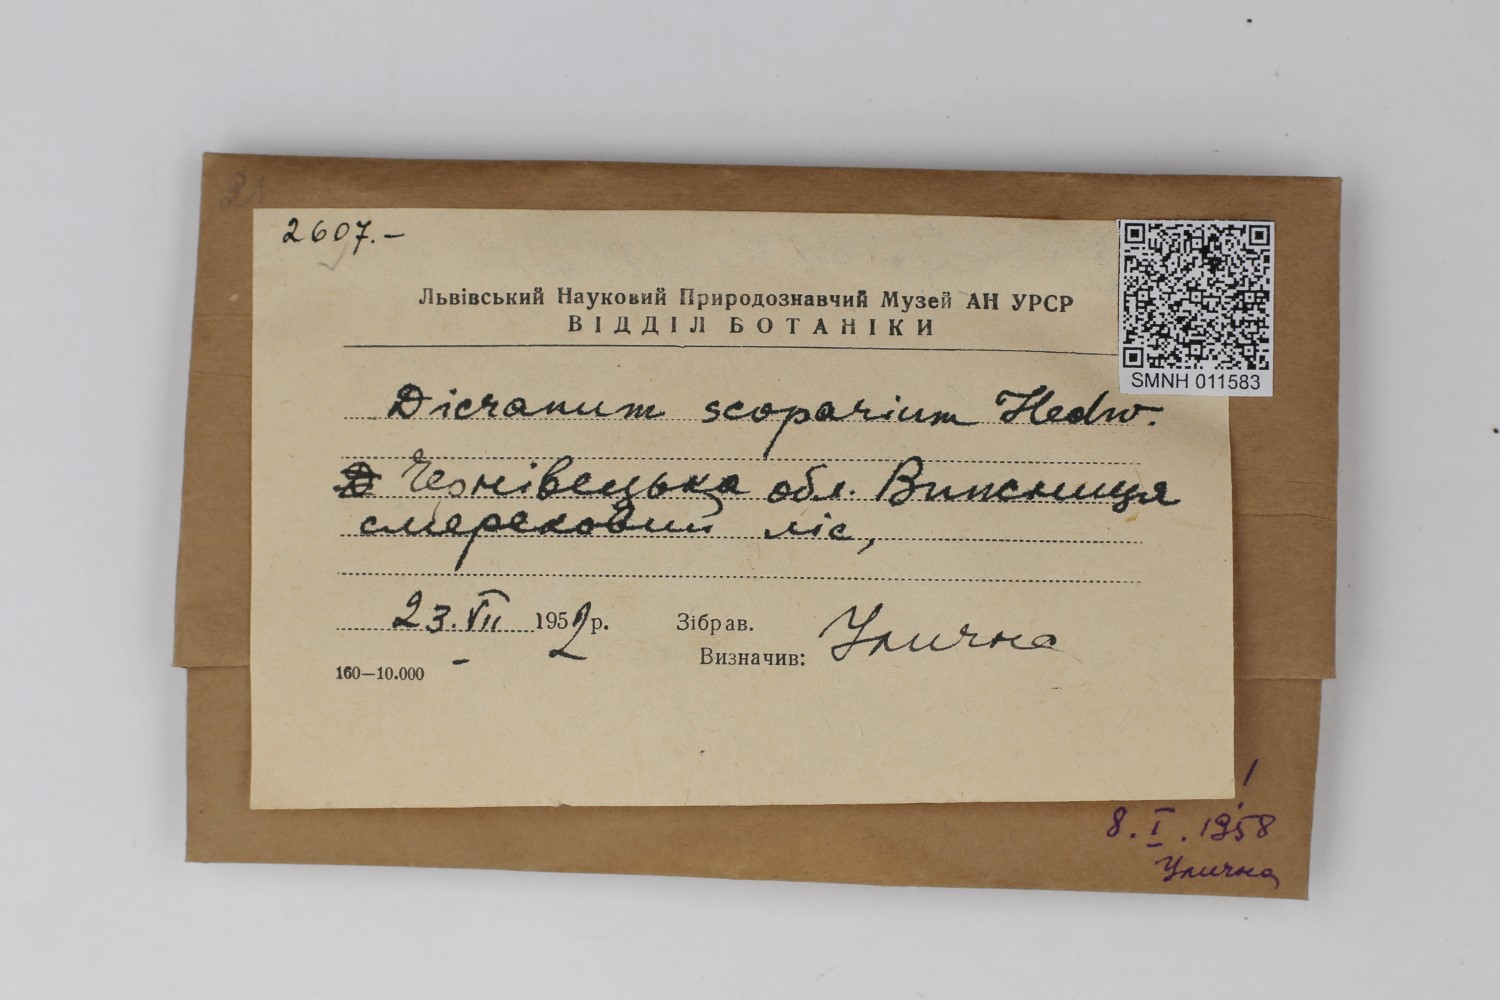 2607.–
Львівський Науковий Природознавчий Музей АН УРСР
ВІДДІЛ БОТАНІКИ
SMNH 011583
Dicranum scoparium Hedw.
Чернівецька обл. Вижниця
смерековий ліс,
23.VII 1952 р. Зібрав.
Визначив: Улична
160—10.000
!
8.I.1958
Улична